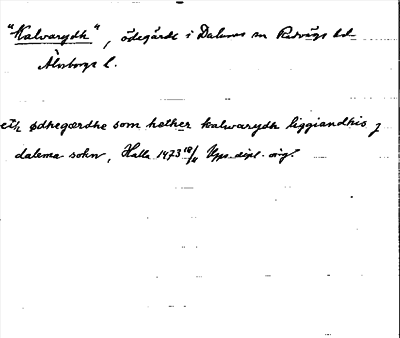 "Kalvarydh", ödegärde i Dalums sn Redvägs hd
Älvsborgs l.
eth ødhegærdhe som hether kalwarydh liggiandhis j
dalema sokn, Halla 1473 18/11 Upps. dipl. orig.